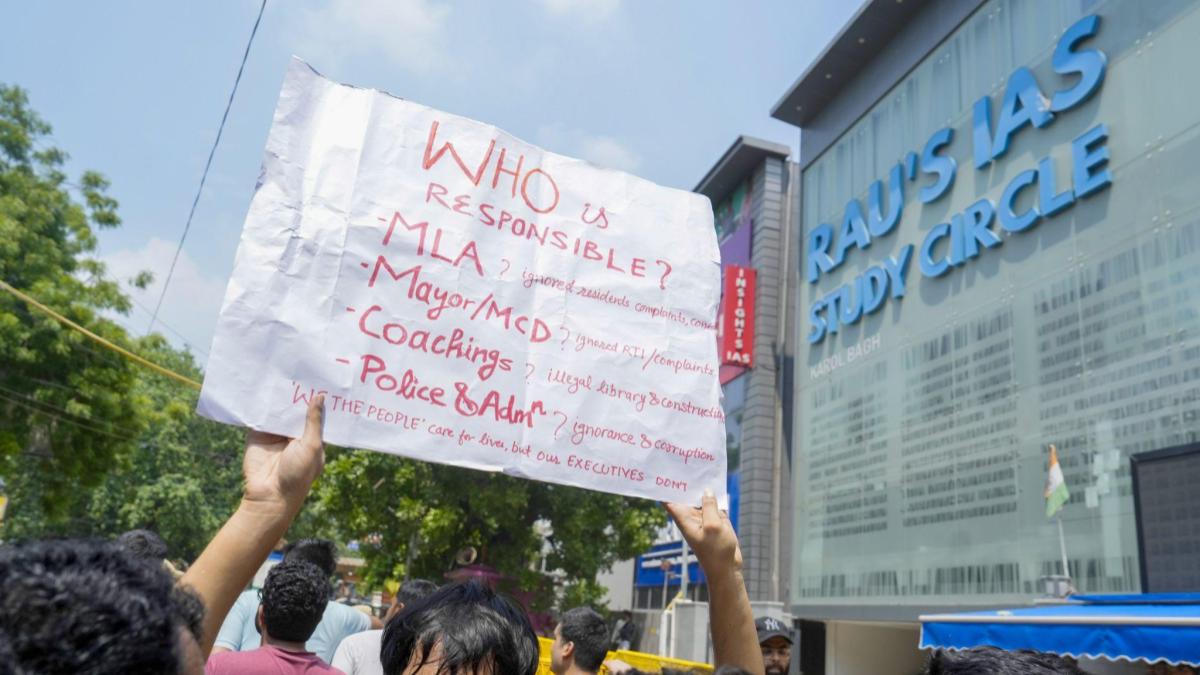 WHO is
RESPONSIBLE?
- MLA ? ignored residents complaints,
- Mayor/MCD ? ignored RTI/complaints
- Coachings ? illegal library & construction
- Police & Admn ? ignorance & corruption
'WE THE PEOPLE' care for lives, but our EXECUTIVES DON'T
INSIGHTS IAS
RAU'S IAS
STUDY CIRCLE
KAROL BAGH
NY